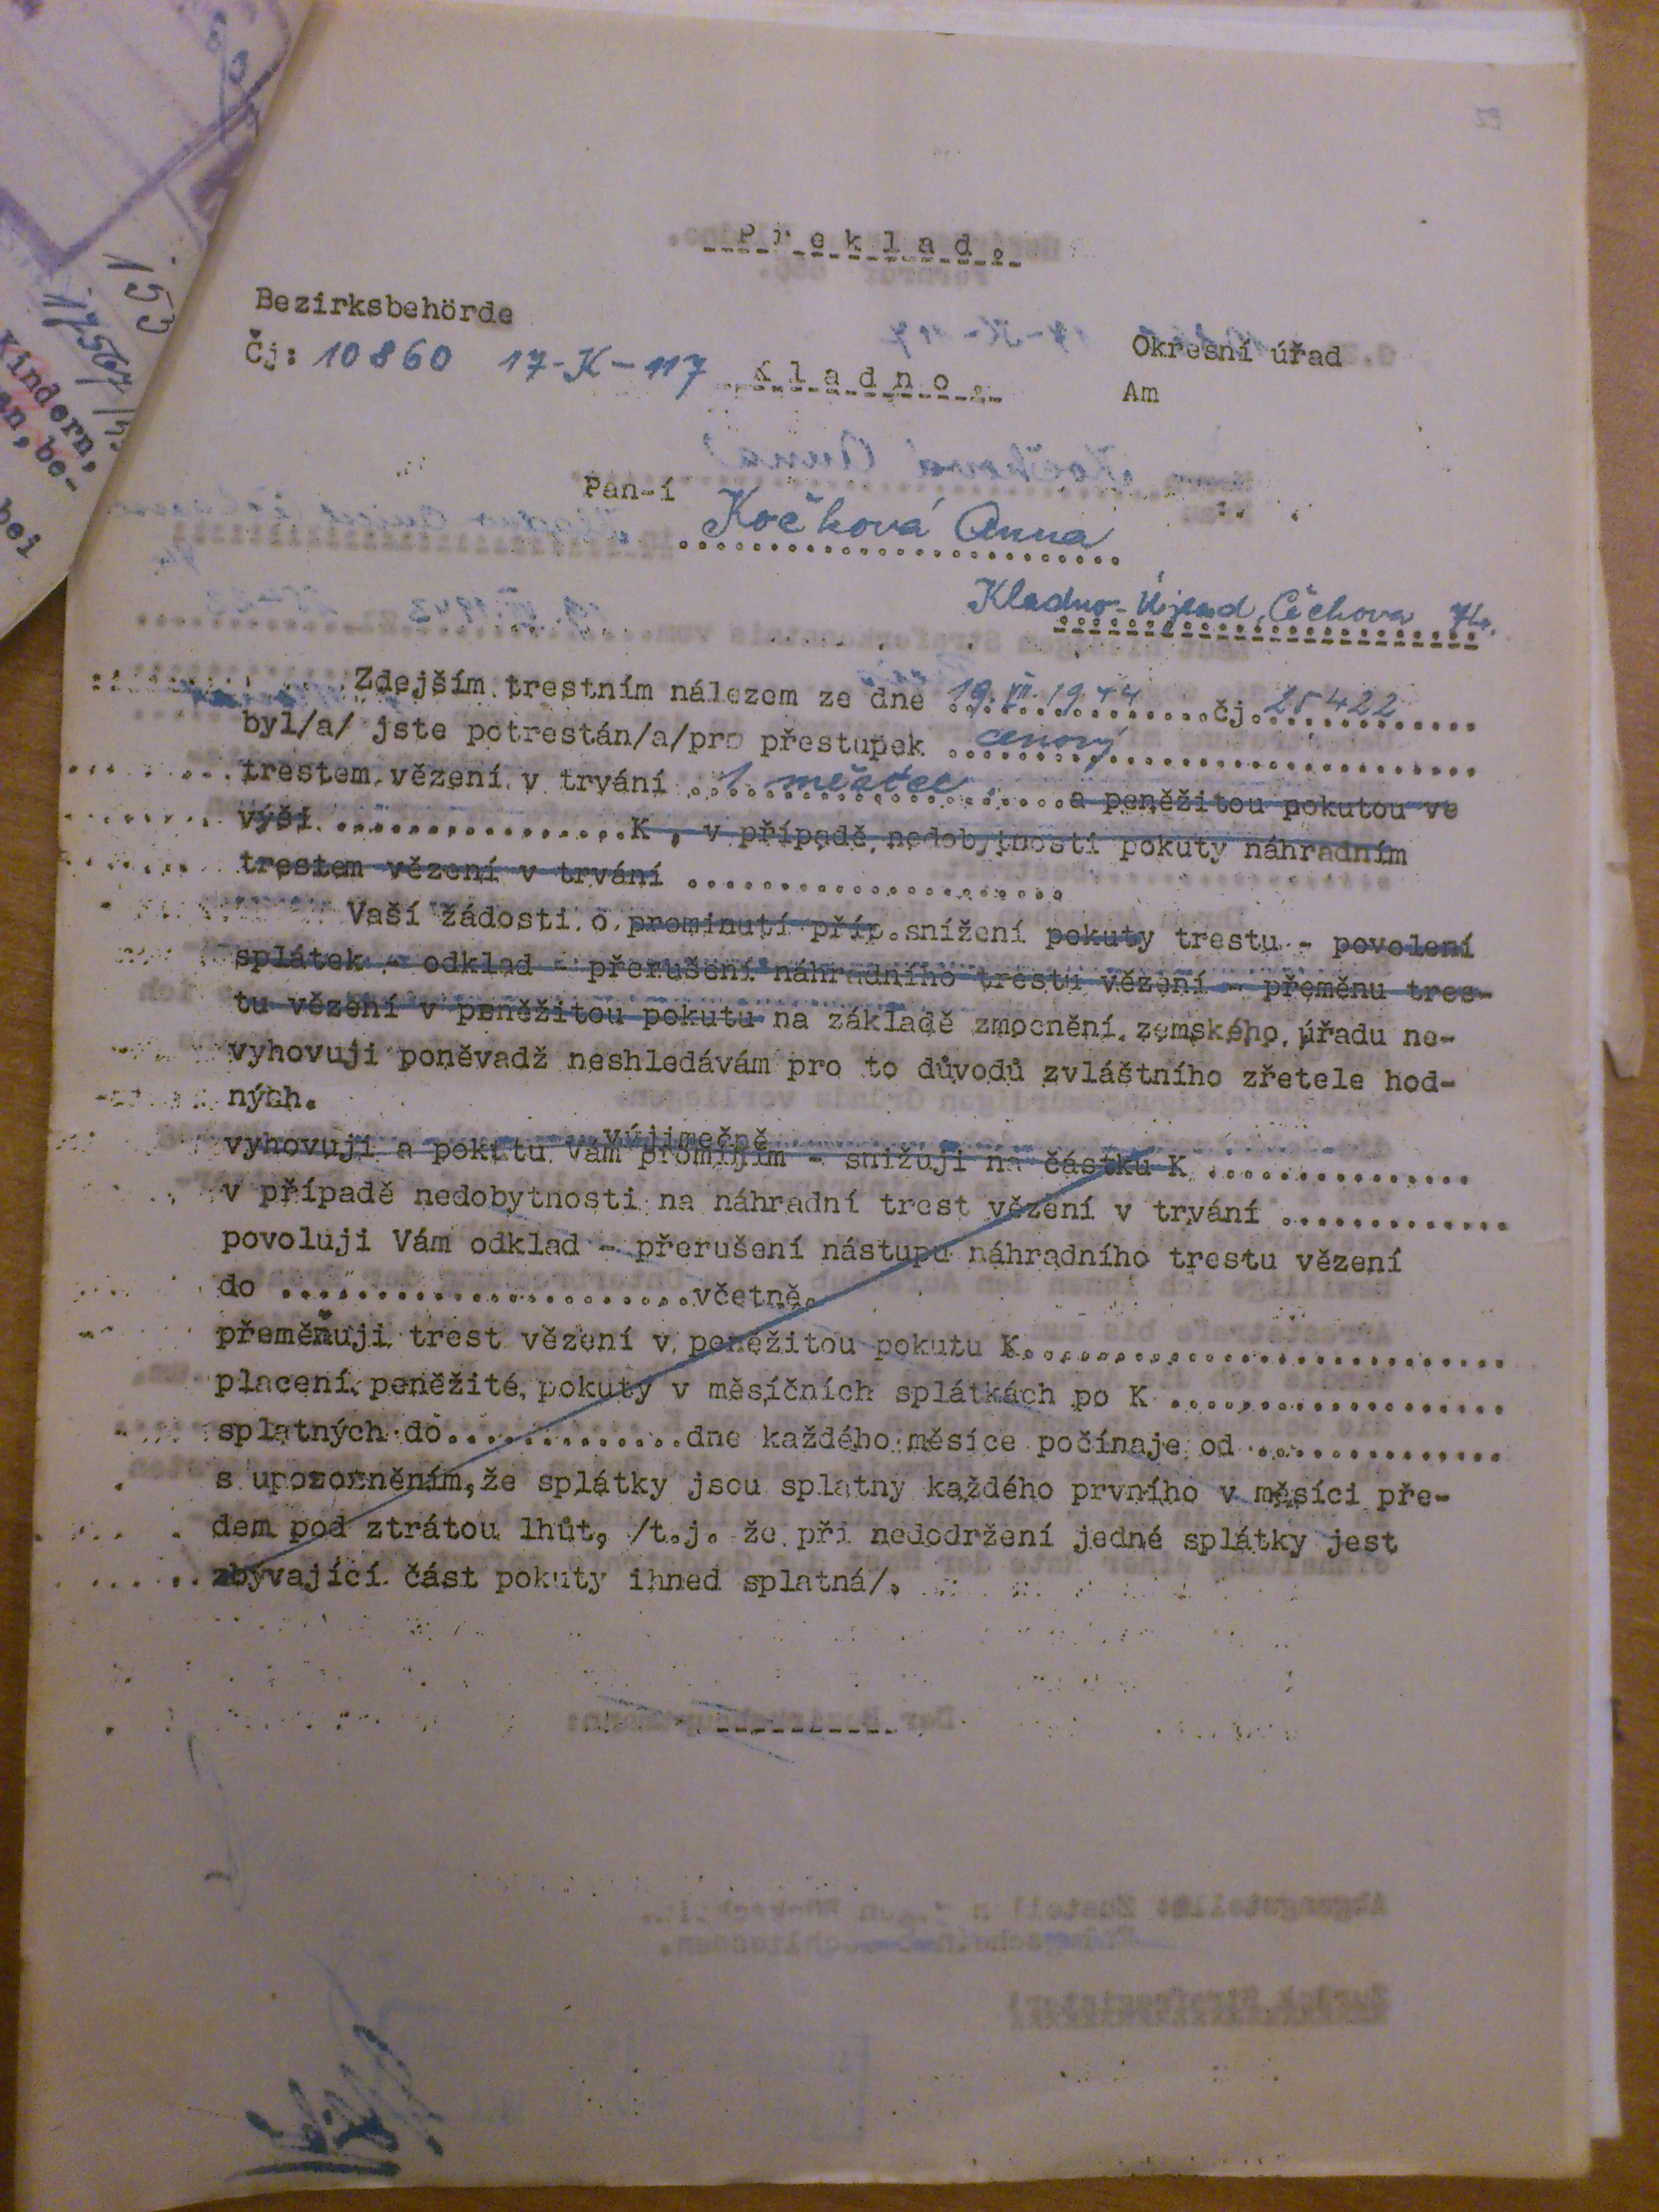 Překlad.
Bezirksbehörde
Okresní úřad
Čj: 10860 17-K-117 Kladno.
Am
Pan-í
Kočková Anna
Kladno-Újezd, Čechova
Zdejším trestním nálezem ze dne 19. VII. 1944 čj. 25422
byl/a/ jste potrestán/a/pro přestupek cenový
trestem vězení v trvání 1 měsíce a peněžitou pokutou ve
výši ................K , v případě nedobytnosti pokuty náhradním
trestem vězení v trvání ....................
Vaší žádosti o prominutí příp.snížení pokuty trestu - povolení
splátek - odklad - přerušení náhradního trestu vězení - přeměnu tres-
tu vězení v peněžitou pokutu na základě zmocnění zemského úřadu ne-
vyhovuji poněvadž neshledávám pro to důvodů zvláštního zřetele hod-
ných.
výjimečně
vyhovuji a pokutu Vám promíjím - snižuji na částku K ...............
v případě nedobytnosti na náhradní trest vězení v trvání .............
povoluji Vám odklad - přerušení nástupu náhradního trestu vězení
do ......................včetně.
přeměňuji trest vězení v peněžitou pokutu K..............................
placení peněžité pokuty v měsíčních splátkách po K ..................
splatných do.............dne každého měsíce počínaje od ..............
s upozorněním,že splátky jsou splatny každého prvního v měsíci pře-
dem pod ztrátou lhůt, /t.j. že při nedodržení jedné splátky jest
zbývající část pokuty ihned splatná/.
153
Kindern,
en, be-
bei